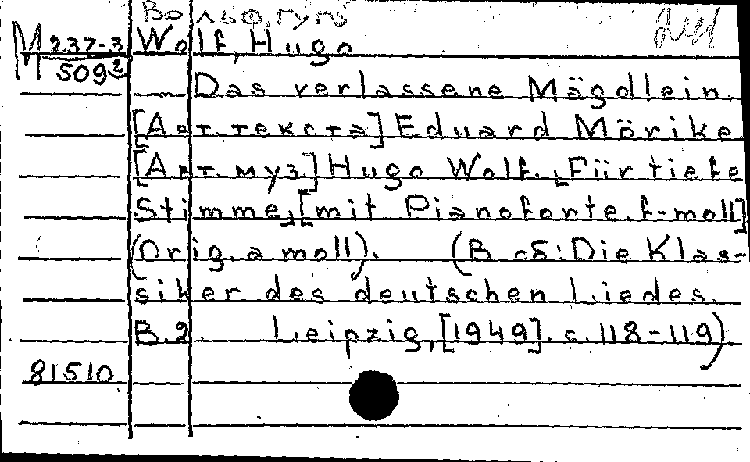 Вольф, Гуго
М 237-3 Wolf, Hugo
509²
Das verlassene Mägdlein.
[Авт. текста] Eduard Mörike
[Авт. муз.] Hugo Wolf. Für tiefe
Stimme, [mit Pianoforte. f-moll]
(Orig. a moll). (В сб: Die Klas-
siker des deutschen Liedes.
B. 2 Leipzig, [1949]. с. 118-119).
81510